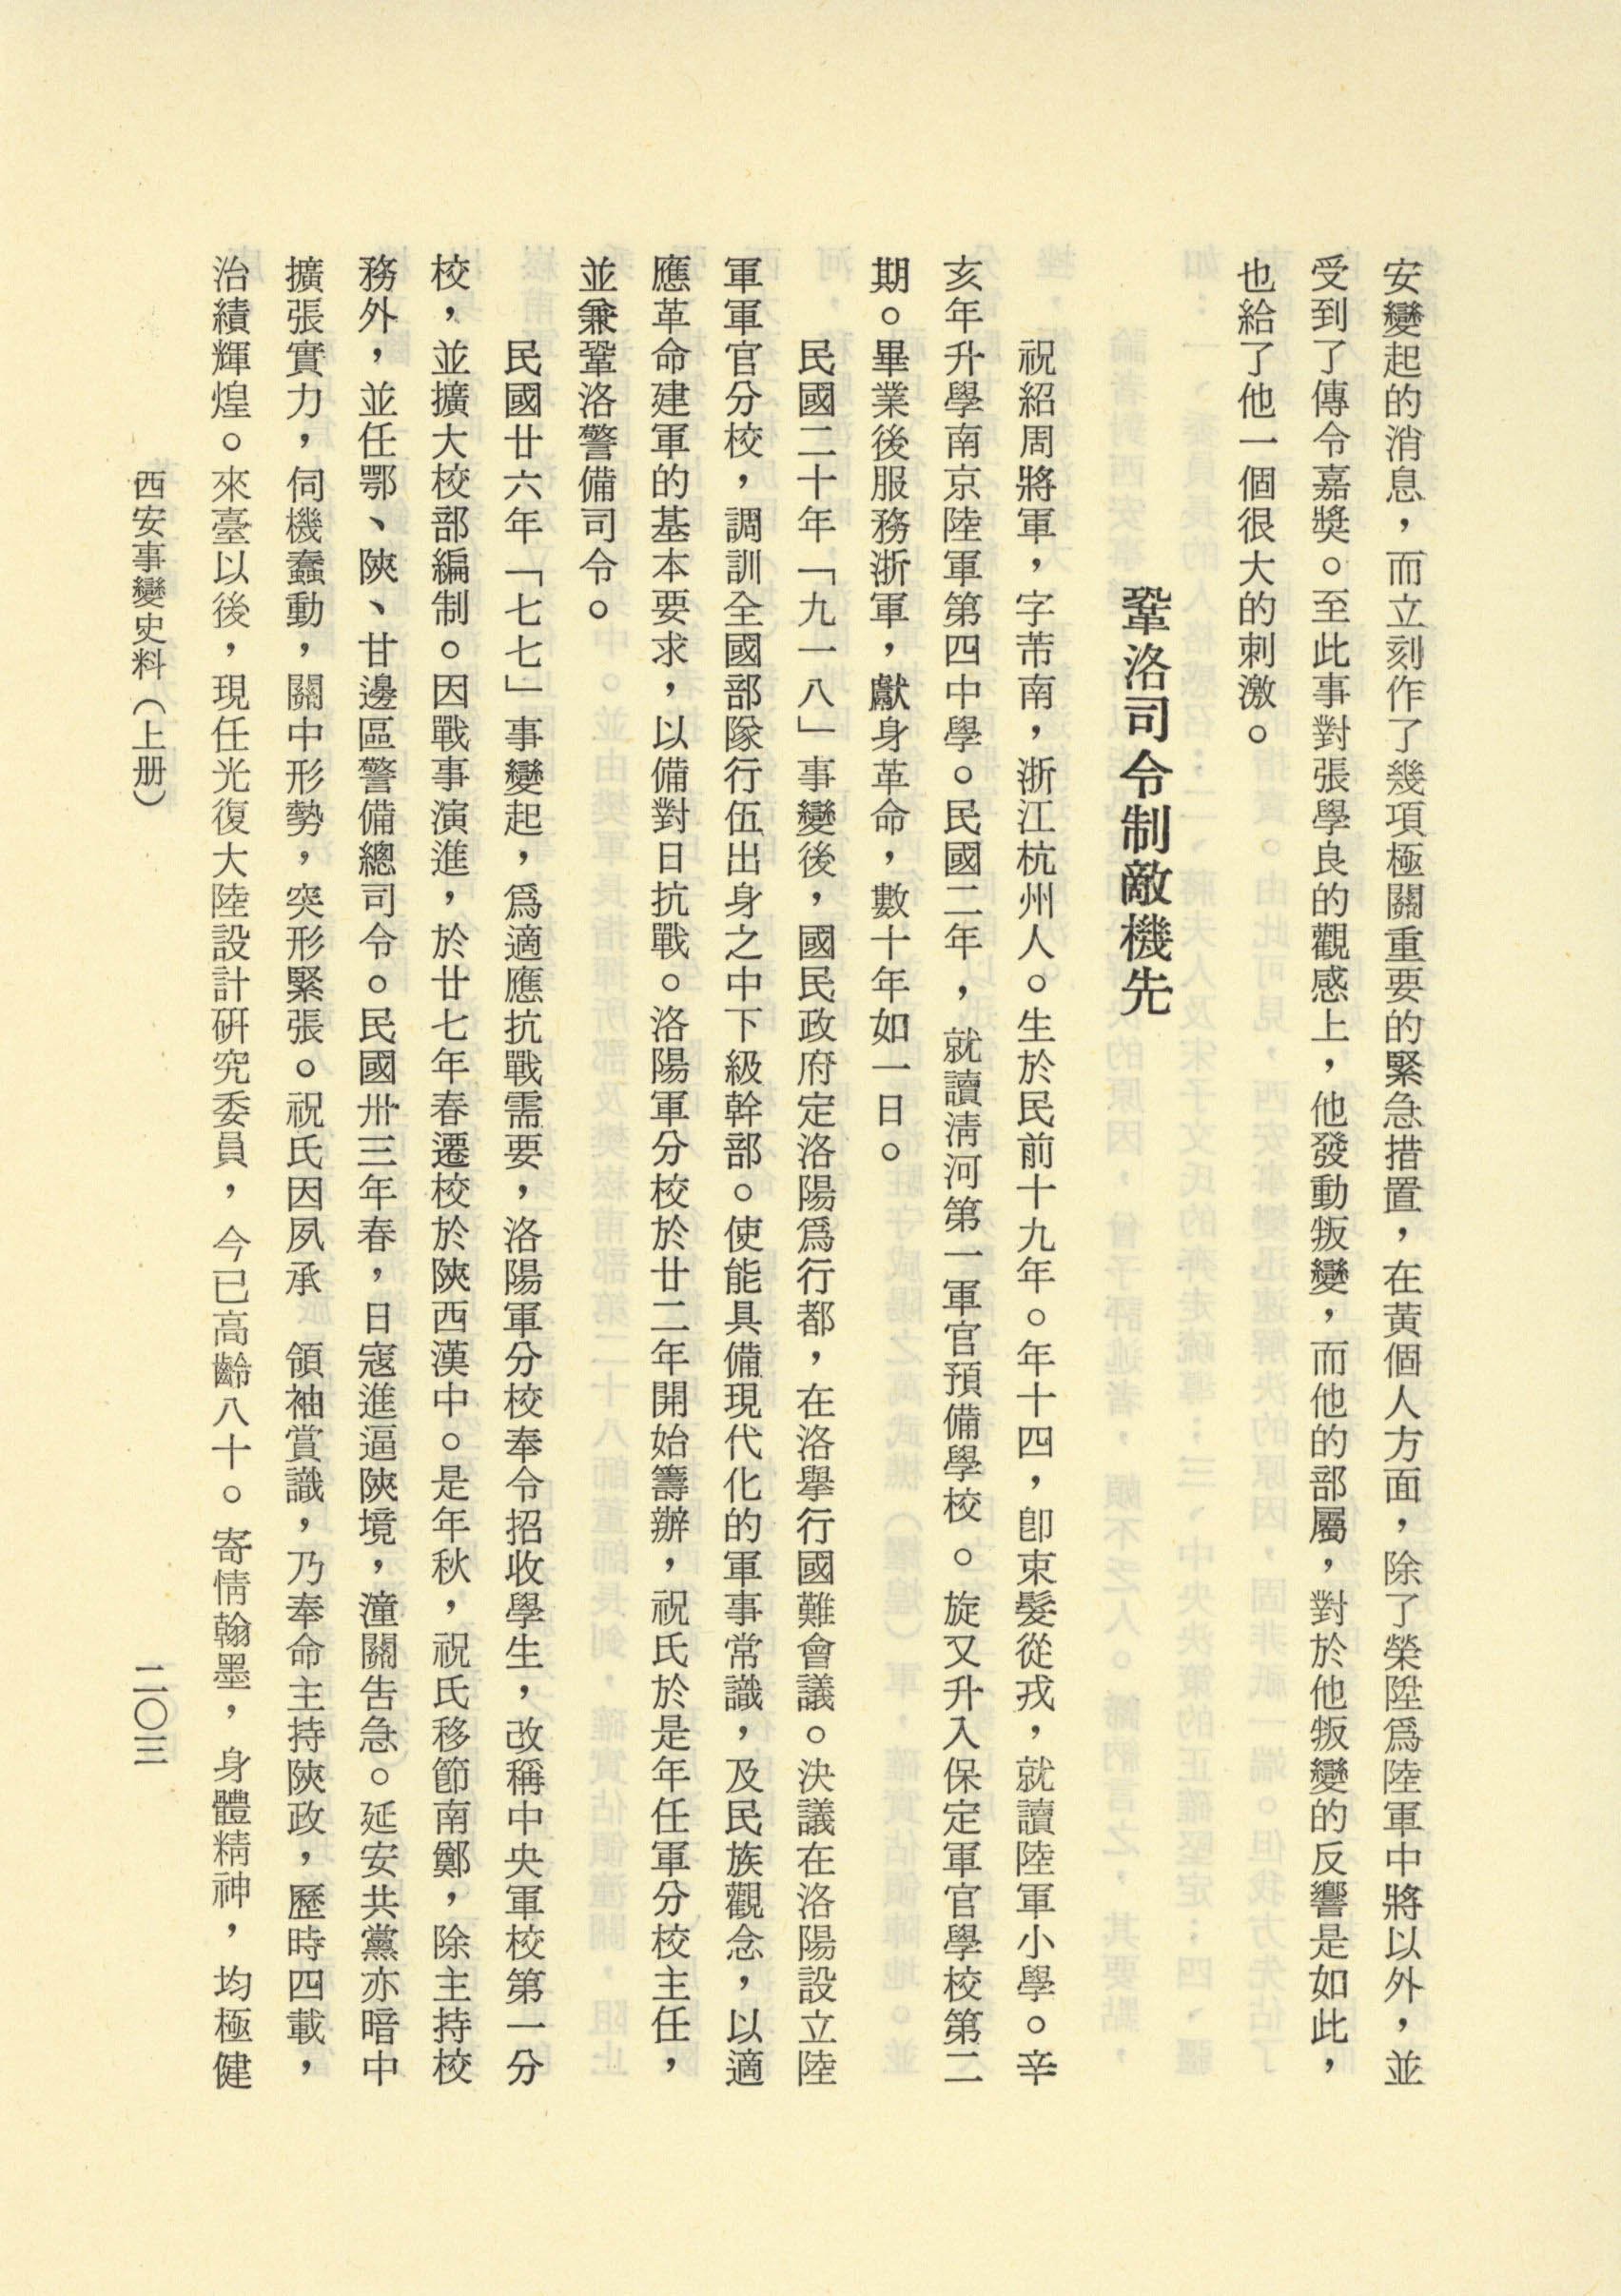 安變起的消息，而立刻作了幾項極關重要的緊急措置，在黃個人方面，除了榮陞爲陸軍中將以外，並
受到了傳令嘉獎。至此事對張學良的觀感上，他發動叛變，而他的部屬，對於他叛變的反響是如此，
也給了他一個很大的刺激。
鞏洛司令制敵機先
祝紹周將軍，字芾南，浙江杭州人。生於民前十九年。年十四，卽束髮從戎，就讀陸軍小學。辛
亥年升學南京陸軍第四中學。民國二年，就讀淸河第一軍官預備學校。旋又升入保定軍官學校第二
期。畢業後服務浙軍，獻身革命，數十年如一日。
民國二十年「九一八」事變後，國民政府定洛陽爲行都，在洛擧行國難會議。決議在洛陽設立陸
軍軍官分校，調訓全國部隊行伍出身之中下級幹部。使能具備現代化的軍事常識，及民族觀念，以適
應革命建軍的基本要求，以備對日抗戰。洛陽軍分校於廿二年開始籌辦，祝氏於是年任軍分校主任，
並兼鞏洛警備司令。
民國廿六年「七七」事變起，爲適應抗戰需要，洛陽軍分校奉令招收學生，改稱中央軍校第一分
校，並擴大校部編制。因戰事演進，於廿七年春遷校於陝西漢中。是年秋，祝氏移節南鄭，除主持校
務外，並任鄂、陝、甘邊區警備總司令。民國卅三年春，日寇進逼陝境，潼關告急。延安共黨亦暗中
擴張實力，伺機蠢動，關中形勢，突形緊張。祝氏因夙承　領袖賞識，乃奉命主持陝政，歷時四載，
治績輝煌。來臺以後，現任光復大陸設計研究委員，今已高齡八十。寄情翰墨，身體精神，均極健
西安事變史料（上册）
二〇三